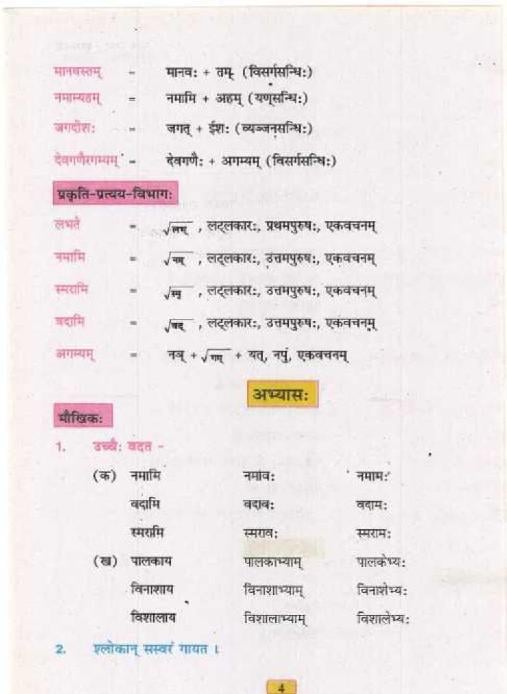 मानवस्तम् = मानवः + तम् (विसर्गसन्धिः)
नमाम्यहम् = नमामि + अहम् (यण्सन्धिः)
जगदीशः = जगत् + ईशः (व्यञ्जनसन्धिः)
देवगणैरगम्यम् = देवगणैः + अगम्यम् (विसर्गसन्धिः)
प्रकृति-प्रत्यय-विभागः
लभते = √लभ् , लट्लकारः, प्रथमपुरुषः, एकवचनम्
नमामि = √नम् , लट्लकारः, उत्तमपुरुषः, एकवचनम्
स्मरामि = √स्मृ , लट्लकारः, उत्तमपुरुषः, एकवचनम्
वदामि = √वद् , लट्लकारः, उत्तमपुरुषः, एकवचनम्
अगम्यम् = नञ् + √गम् + यत्, नपुं, एकवचनम्
अभ्यासः
मौखिकः
1. उच्चैः वदत -
(क) नमामि नमावः नमामः
वदामि वदावः वदामः
स्मरामि स्मरावः स्मरामः
(ख) पालकाय पालकाभ्याम् पालकेभ्यः
विनाशाय विनाशाभ्याम् विनाशेभ्यः
विशालाय विशालाभ्याम् विशालेभ्यः
2. श्लोकान् सस्वरं गायत ।
4